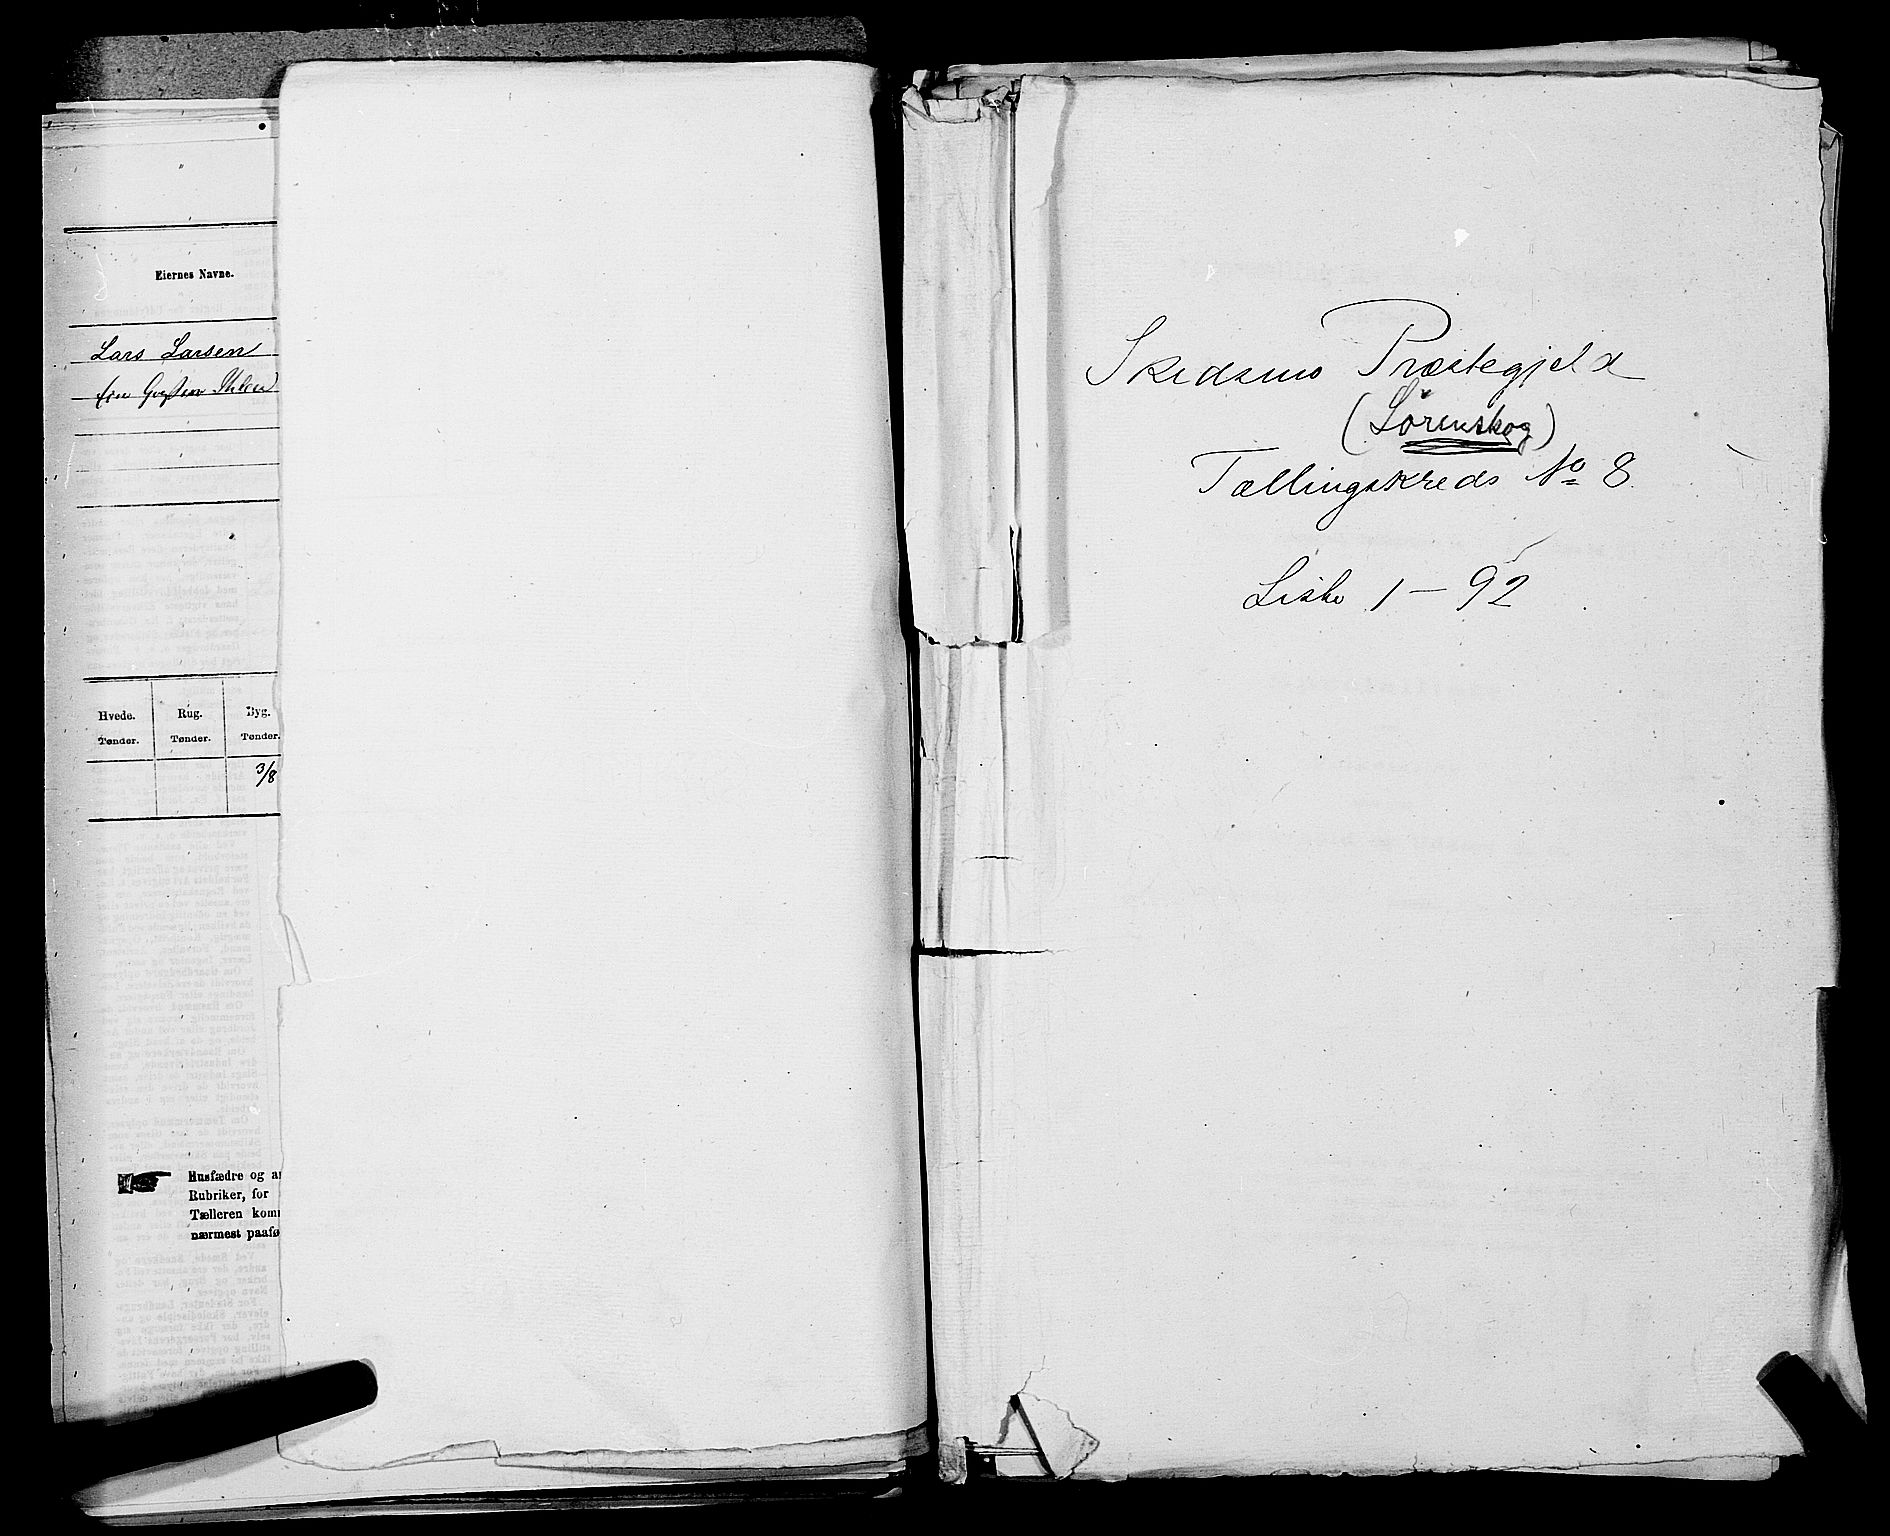 Eiernes Navne.
Lars Larsen
Hvede. Rug. Byg.
Tønder. Tønder. Tønder.
3/8
Husfædre og a
Rubriker, for
Tælleren kom
nærmest paafø
Skedsmo Præstegjeld
(Lörenskog)
Tællingskreds No 8.
Liste 1 - 92